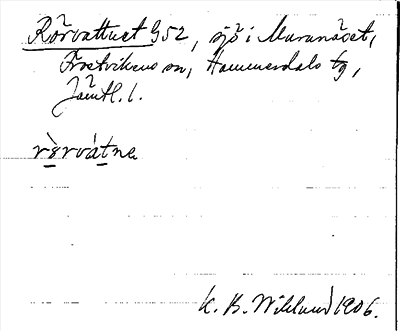 Rörvattnet G52, sjö i Murunäset,
Frostvikens sn, Hammerdals tg,
Jämtl. l.
rörvátna
K. B. Wiklund 1906.